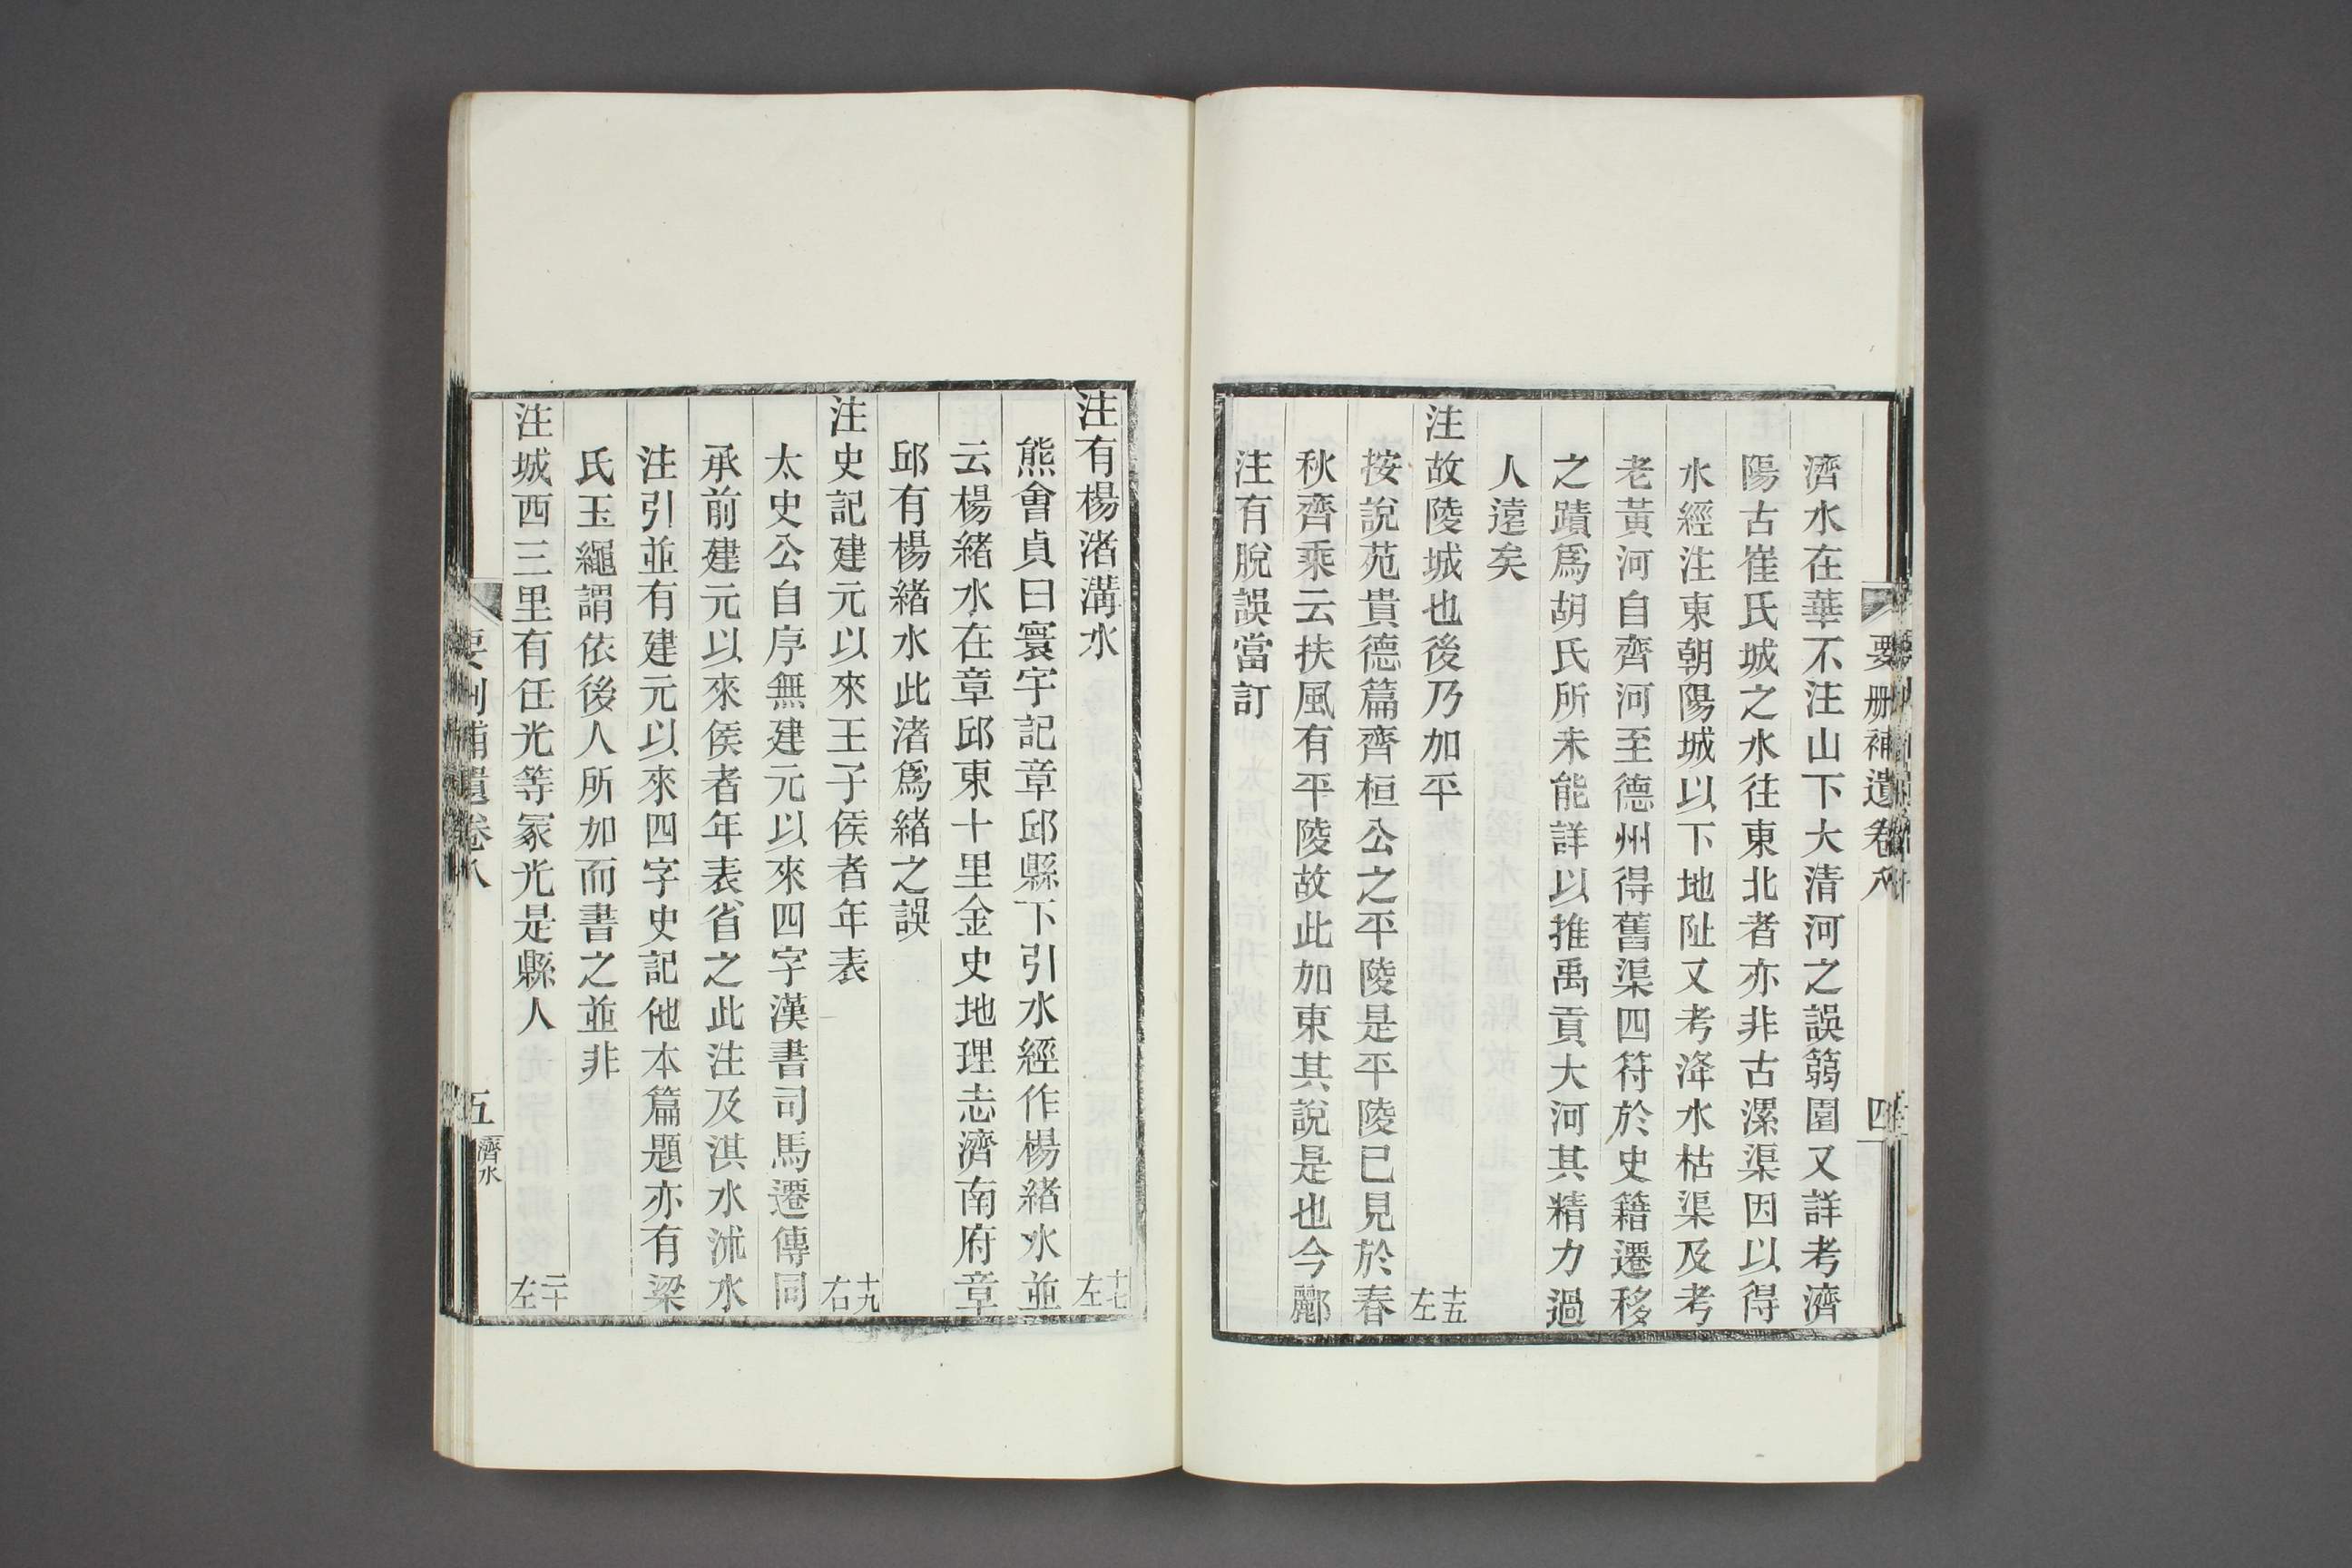 要册補遺卷八
四
濟水在華不注山下大清河之誤箌園又詳考濟
陽古崔氏城之水往東北者亦非古漯渠因以得
水經注東朝陽城以下地阯又考洚水枯渠及考
老黃河自齊河至德州得舊渠四符於史籍遷移
之蹟爲胡氏所未能詳以推禹貢大河其精力過
人遠矣
注故陵城也後乃加平 十五左
按說苑貴德篇齊桓公之平陵是平陵已見於春
秋齊乘云扶風有平陵故此加東其說是也今酈
注有脫誤當訂
注有楊渚溝水 十七左
熊會貞曰寰宇記章邱縣下引水經作楊緒水並
云楊緒水在章邱東十里金史地理志濟南府章
邱有楊緒水此渚爲緒之誤
注史記建元以來王子侯者年表 十九右
太史公自序無建元以來四字漢書司馬遷傳同
承前建元以來侯者年表省之此注及淇水沭水
注引並有建元以來四字史記他本篇題亦有梁
氏玉繩謂依後人所加而書之並非
注城西三里有任光等冢光是縣人 二十左
補遺卷八
五
濟水